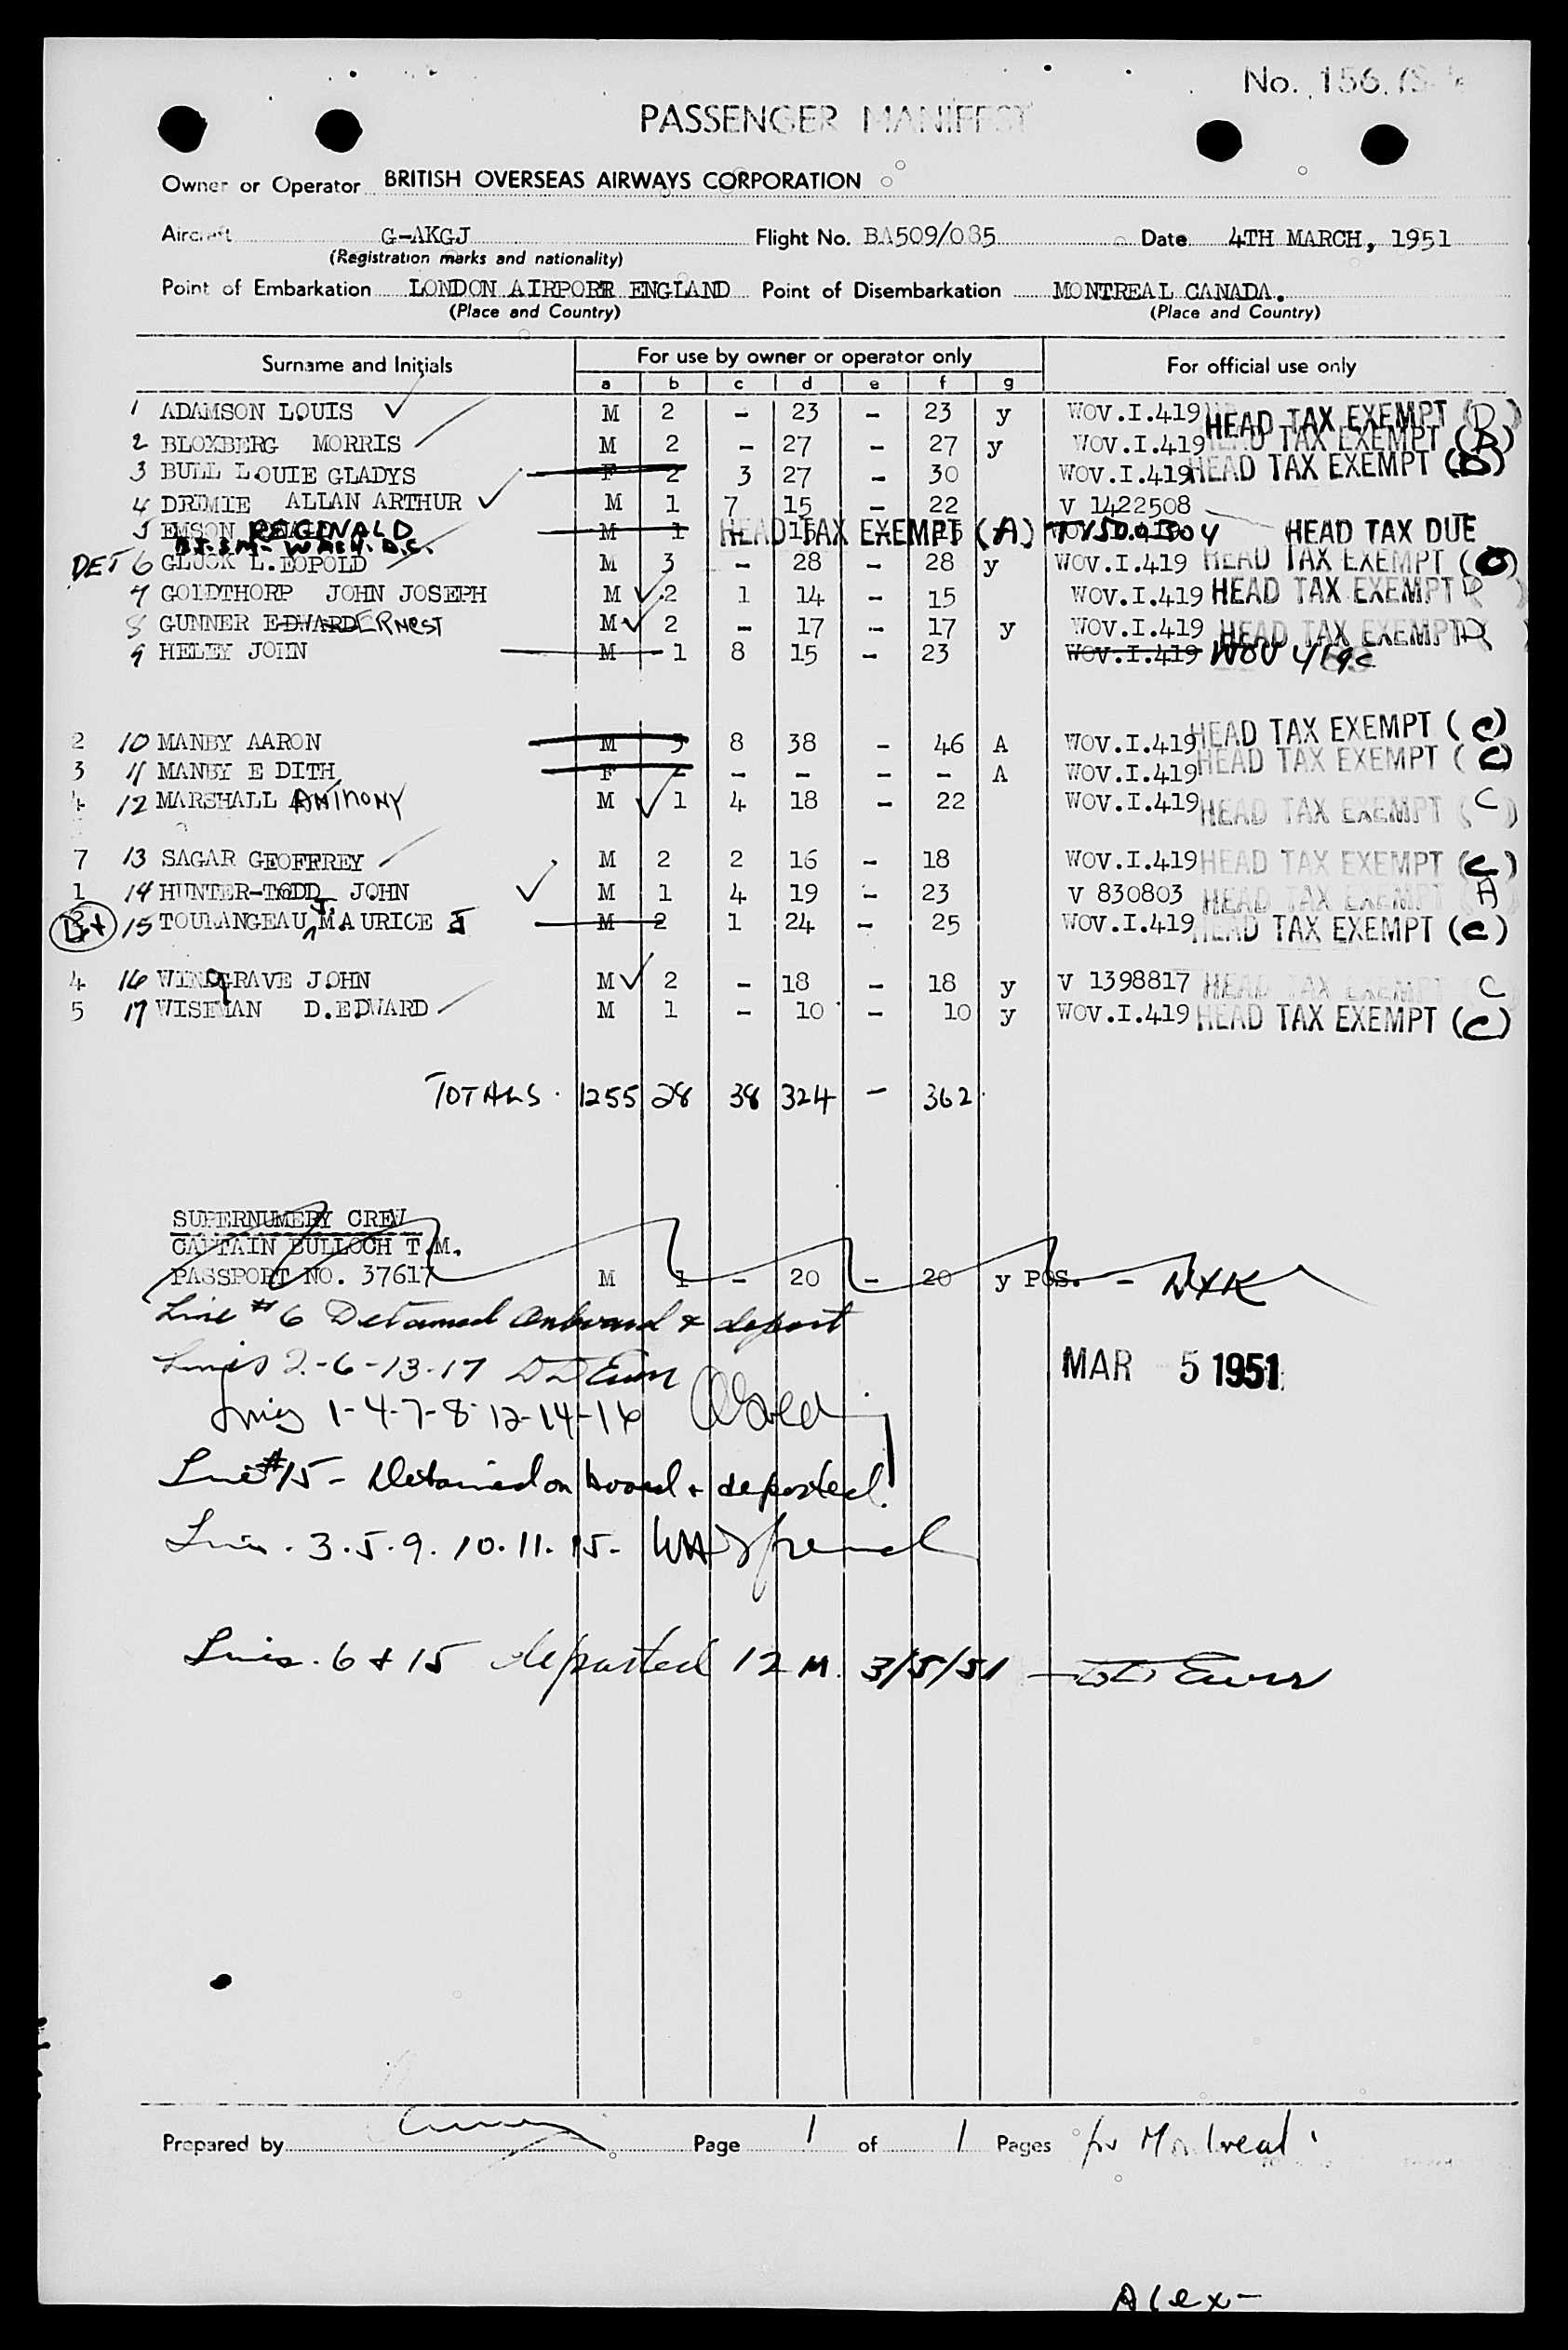 No. 156.
PASSENGER MANIFEST
Owner or Operator BRITISH OVERSEAS AIRWAYS CORPORATION
Aircraft G-AKGJ Flight No. BA509/085 Date 4TH MARCH, 1951
(Registration marks and nationality)
Point of Embarkation LONDON AIRPORT ENGLAND Point of Disembarkation MONTREAL CANADA.
(Place and Country) (Place and Country)
Surname and Initials For use by owner or operator only For official use only
a b c d e f g
1 ADAMSON LOUIS M 2 - 23 - 23 y WOV.I.419 HEAD TAX EXEMPT (D)
2 BLOXBERG MORRIS M 2 - 27 - 27 y WOV.I.419 HEAD TAX EXEMPT (D)
3 BULL LOUIE GLADYS F 2 3 27 - 30 WOV.I.419 HEAD TAX EXEMPT (D)
4 DRIMIE ALLAN ARTHUR M 1 7 15 - 22 V 1422508
5 EMSON REGINALD M 1 HEAD TAX EXEMPT (A) HEAD TAX DUE
B.J.S.M. WASH. D.C.
DET 6 GLUCK L.EOPOLD M 3 - 28 - 28 y WOV.I.419 HEAD TAX EXEMPT
7 GOLDTHORP JOHN JOSEPH M 2 1 14 - 15 WOV.I.419 HEAD TAX EXEMPT D
8 GUNNER EDWARD ERNEST M 2 - 17 - 17 y WOV.I.419 HEAD TAX EXEMPT D
9 HELEY JOHN M 1 8 15 - 23 WOV.I.419 WOV 419c
2 10 MANBY AARON M 3 8 38 - 46 A WOV.I.419 HEAD TAX EXEMPT (C)
3 11 MANBY E DITH F - - - - - A WOV.I.419 HEAD TAX EXEMPT (C)
4 12 MARSHALL ANTHONY M 1 4 18 - 22 WOV.I.419 HEAD TAX EXEMPT (C)
7 13 SAGAR GEOFFREY M 2 2 16 - 18 WOV.I.419 HEAD TAX EXEMPT (C)
1 14 HUNTER-TODD JOHN M 1 4 19 - 23 V 830803 HEAD TAX EXEMPT A
15 TOULANGEAU J. MAURICE J M 2 1 24 - 25 WOV.I.419 HEAD TAX EXEMPT (C)
4 16 WINGRAVE JOHN M 2 - 18 - 18 y V 1398817 HEAD TAX EXEMPT C
5 17 WISEMAN D.EDWARD M 1 - 10 - 10 y WOV.I.419 HEAD TAX EXEMPT (C)
TOTALS. 1255 28 38 324 - 362
SUPERNUMERY CREW
CAPTAIN BULLOCH T.M.
PASSPORT NO. 37617 M 1 - 20 - 20 y POS.
Line #6 Detained onboard & deport
Lines 2-6-13-17
MAR 5 1951
Lines 1-4-7-8-12-14-16
Line #15 - Detained on board & deported.
Lines. 3.5.9.10.11.15-
Lines. 6 & 15 departed 12 M. 3/5/51
Prepared by Page 1 of 1 Pages for Montreal
Alex-